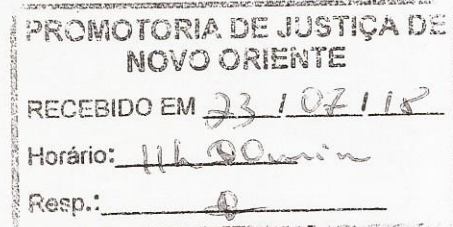 PROMOTORIA DE JUSTIÇA DE
NOVO ORIENTE
RECEBIDO EM 23 / 07 / 18
Horário: 11h 00min
Resp.: